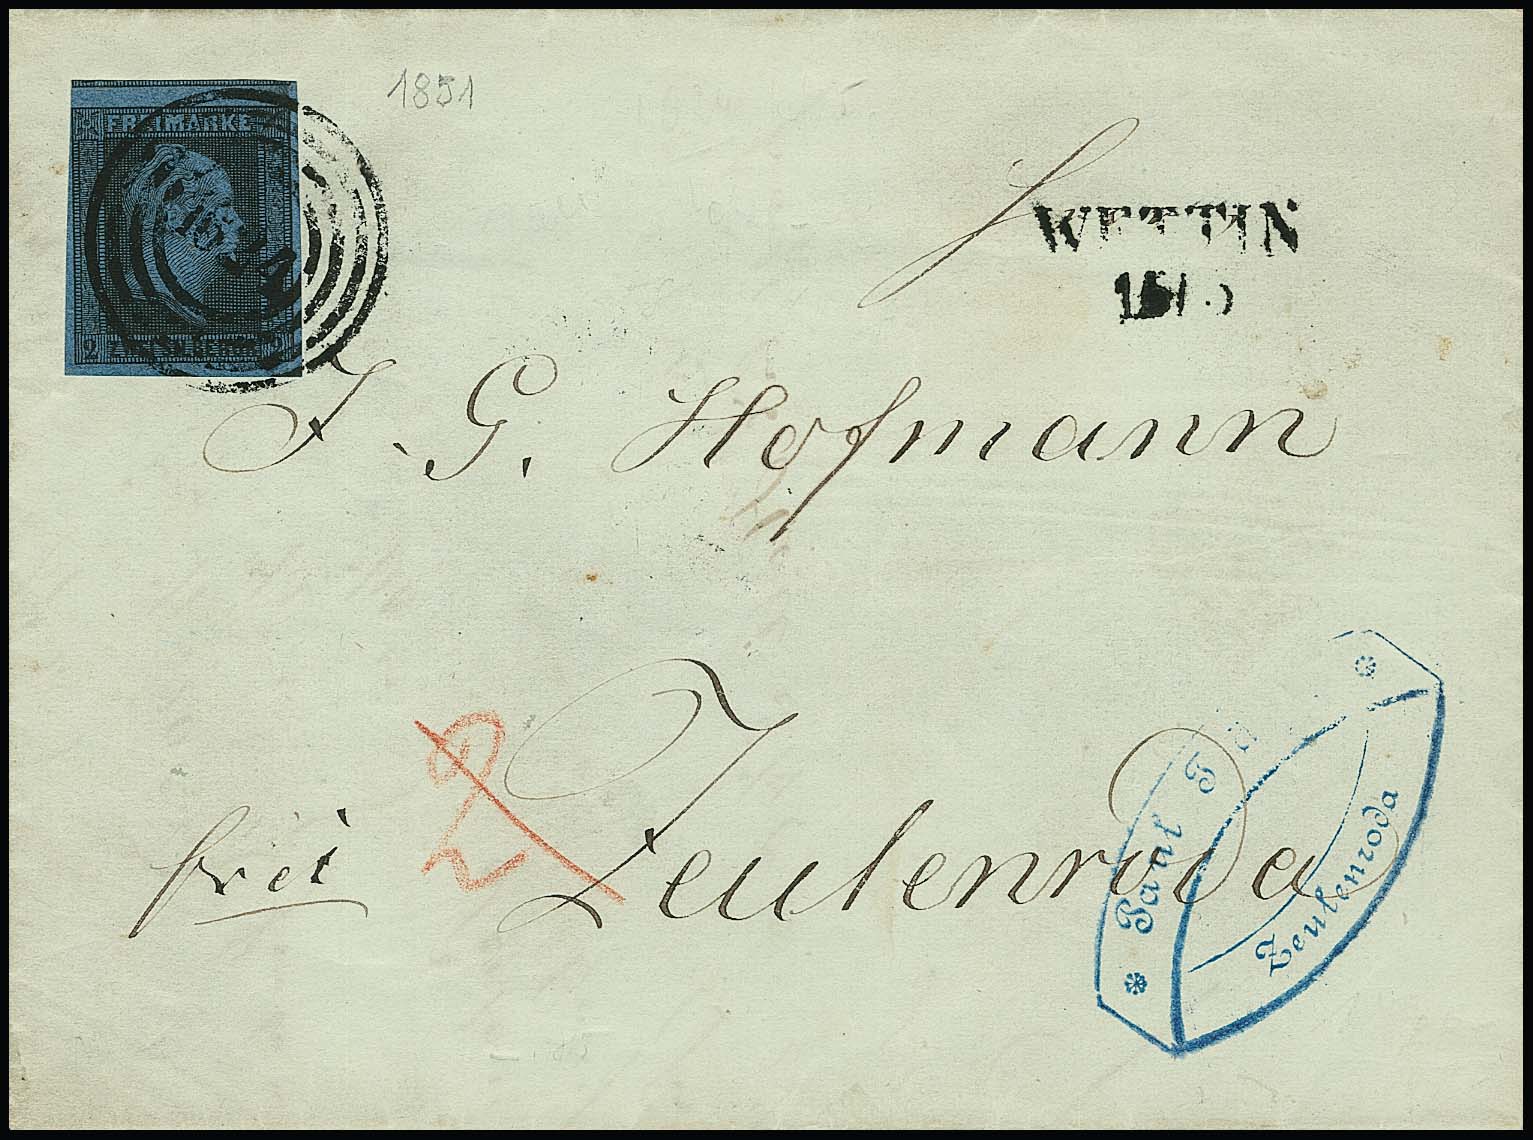 1851
FREIMARKE
2
WETTIN
J. G. Hofmann
frei
2
Zeulenroda
Paul
Zeulenroda